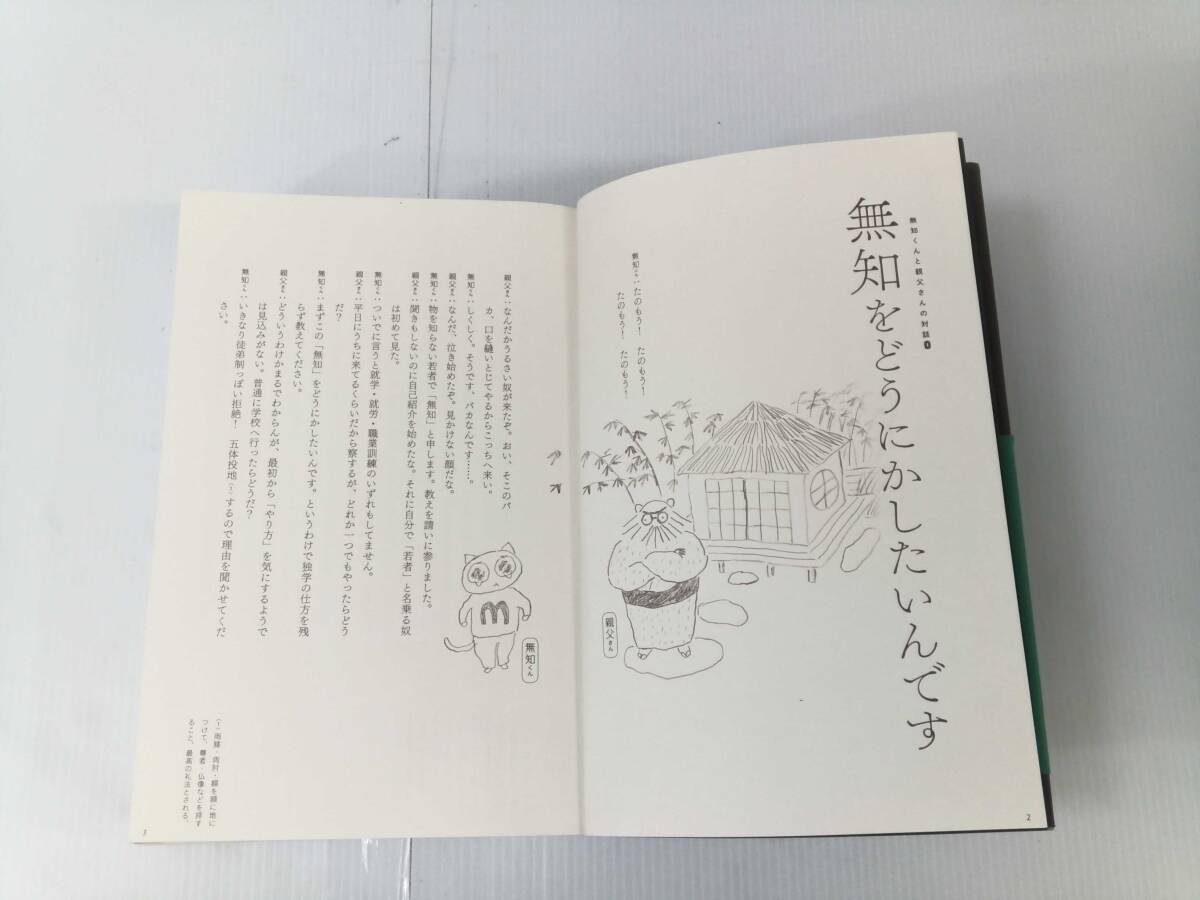 無知くんと親父さんの対話1
無知をどうにかしたいんです
無知くん:たのもう! たのもう!
たのもう! たのもう!
親父さん
2
親父さん:なんだかうるさい奴が来たぞ。おい、そこのバ
カ、口を縫いとじてやるからこっちへ来い。
無知くん:しくしく。そうです、バカなんです……。
親父さん:なんだ、泣き始めたぞ。見かけない顔だな。
無知くん:物を知らない若者で「無知」と申します。教えを請いに参りました。
親父さん:聞きもしないのに自己紹介を始めたな。それに自分で「若者」と名乗る奴
は初めて見た。
無知くん:ついでに言うと就学・就労・職業訓練のいずれもしてません。
親父さん:平日にうちに来てるくらいだから察するが、どれか一つでもやったらどう
だ?
無知くん:まずこの「無知」をどうにかしたいんです。というわけで独学の仕方を残
らず教えてください。
親父さん:どういうわけかまるでわからんが、最初から「やり方」を気にするようで
は見込みがない。普通に学校へ行ったらどうだ?
無知くん:いきなり徒弟制っぽい拒絶! 五体投地(1)するので理由を聞かせてくだ
さい。
m
無知くん
(1)両膝・両肘・額を順に地に
つけて、尊者・仏像などを拝す
ること。最高の礼法とされる。
3